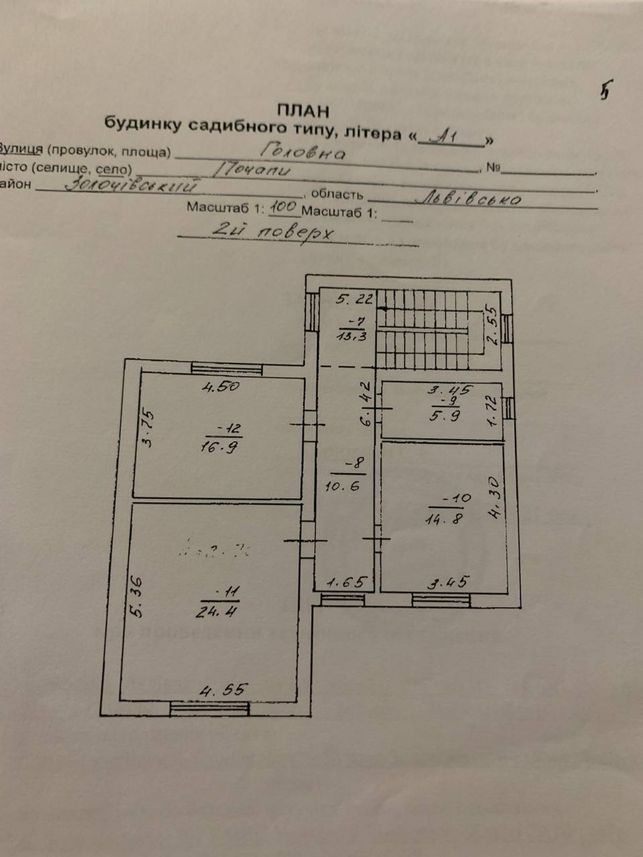 5
ПЛАН
будинку садибного типу, літера « А1 »
Вулиця (провулок, площа) Головна
місто (селище, село) Почапи , №
район Золочівський , область Львівська
Масштаб 1: 100 Масштаб 1:
2й поверх
5.22
-7
13,3
2.55
4.50
3.45
-9
5.9
1.72
6.42
3.75
-12
16.9
-8
10.6
-10
14.8
4.30
5.36
-11
24.4
1.65
3.45
4.55